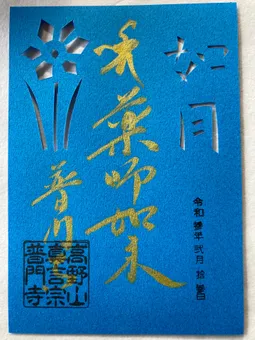 如月
令和 年 弐月 拾 日
奉
薬師如来
普門寺
高野山
真言宗
普門寺